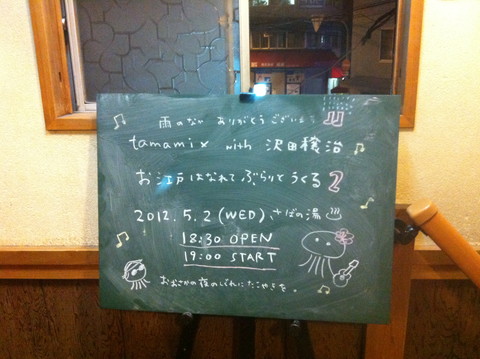 雨のなか ありがとうございます
tamamix with 沢田穣治
お江戸はなれて ぶらりとうくる2
2012.5.2 (WED) さばの湯
18:30 OPEN
19:00 START
おおさかの夜のしぐれにたこやきを。